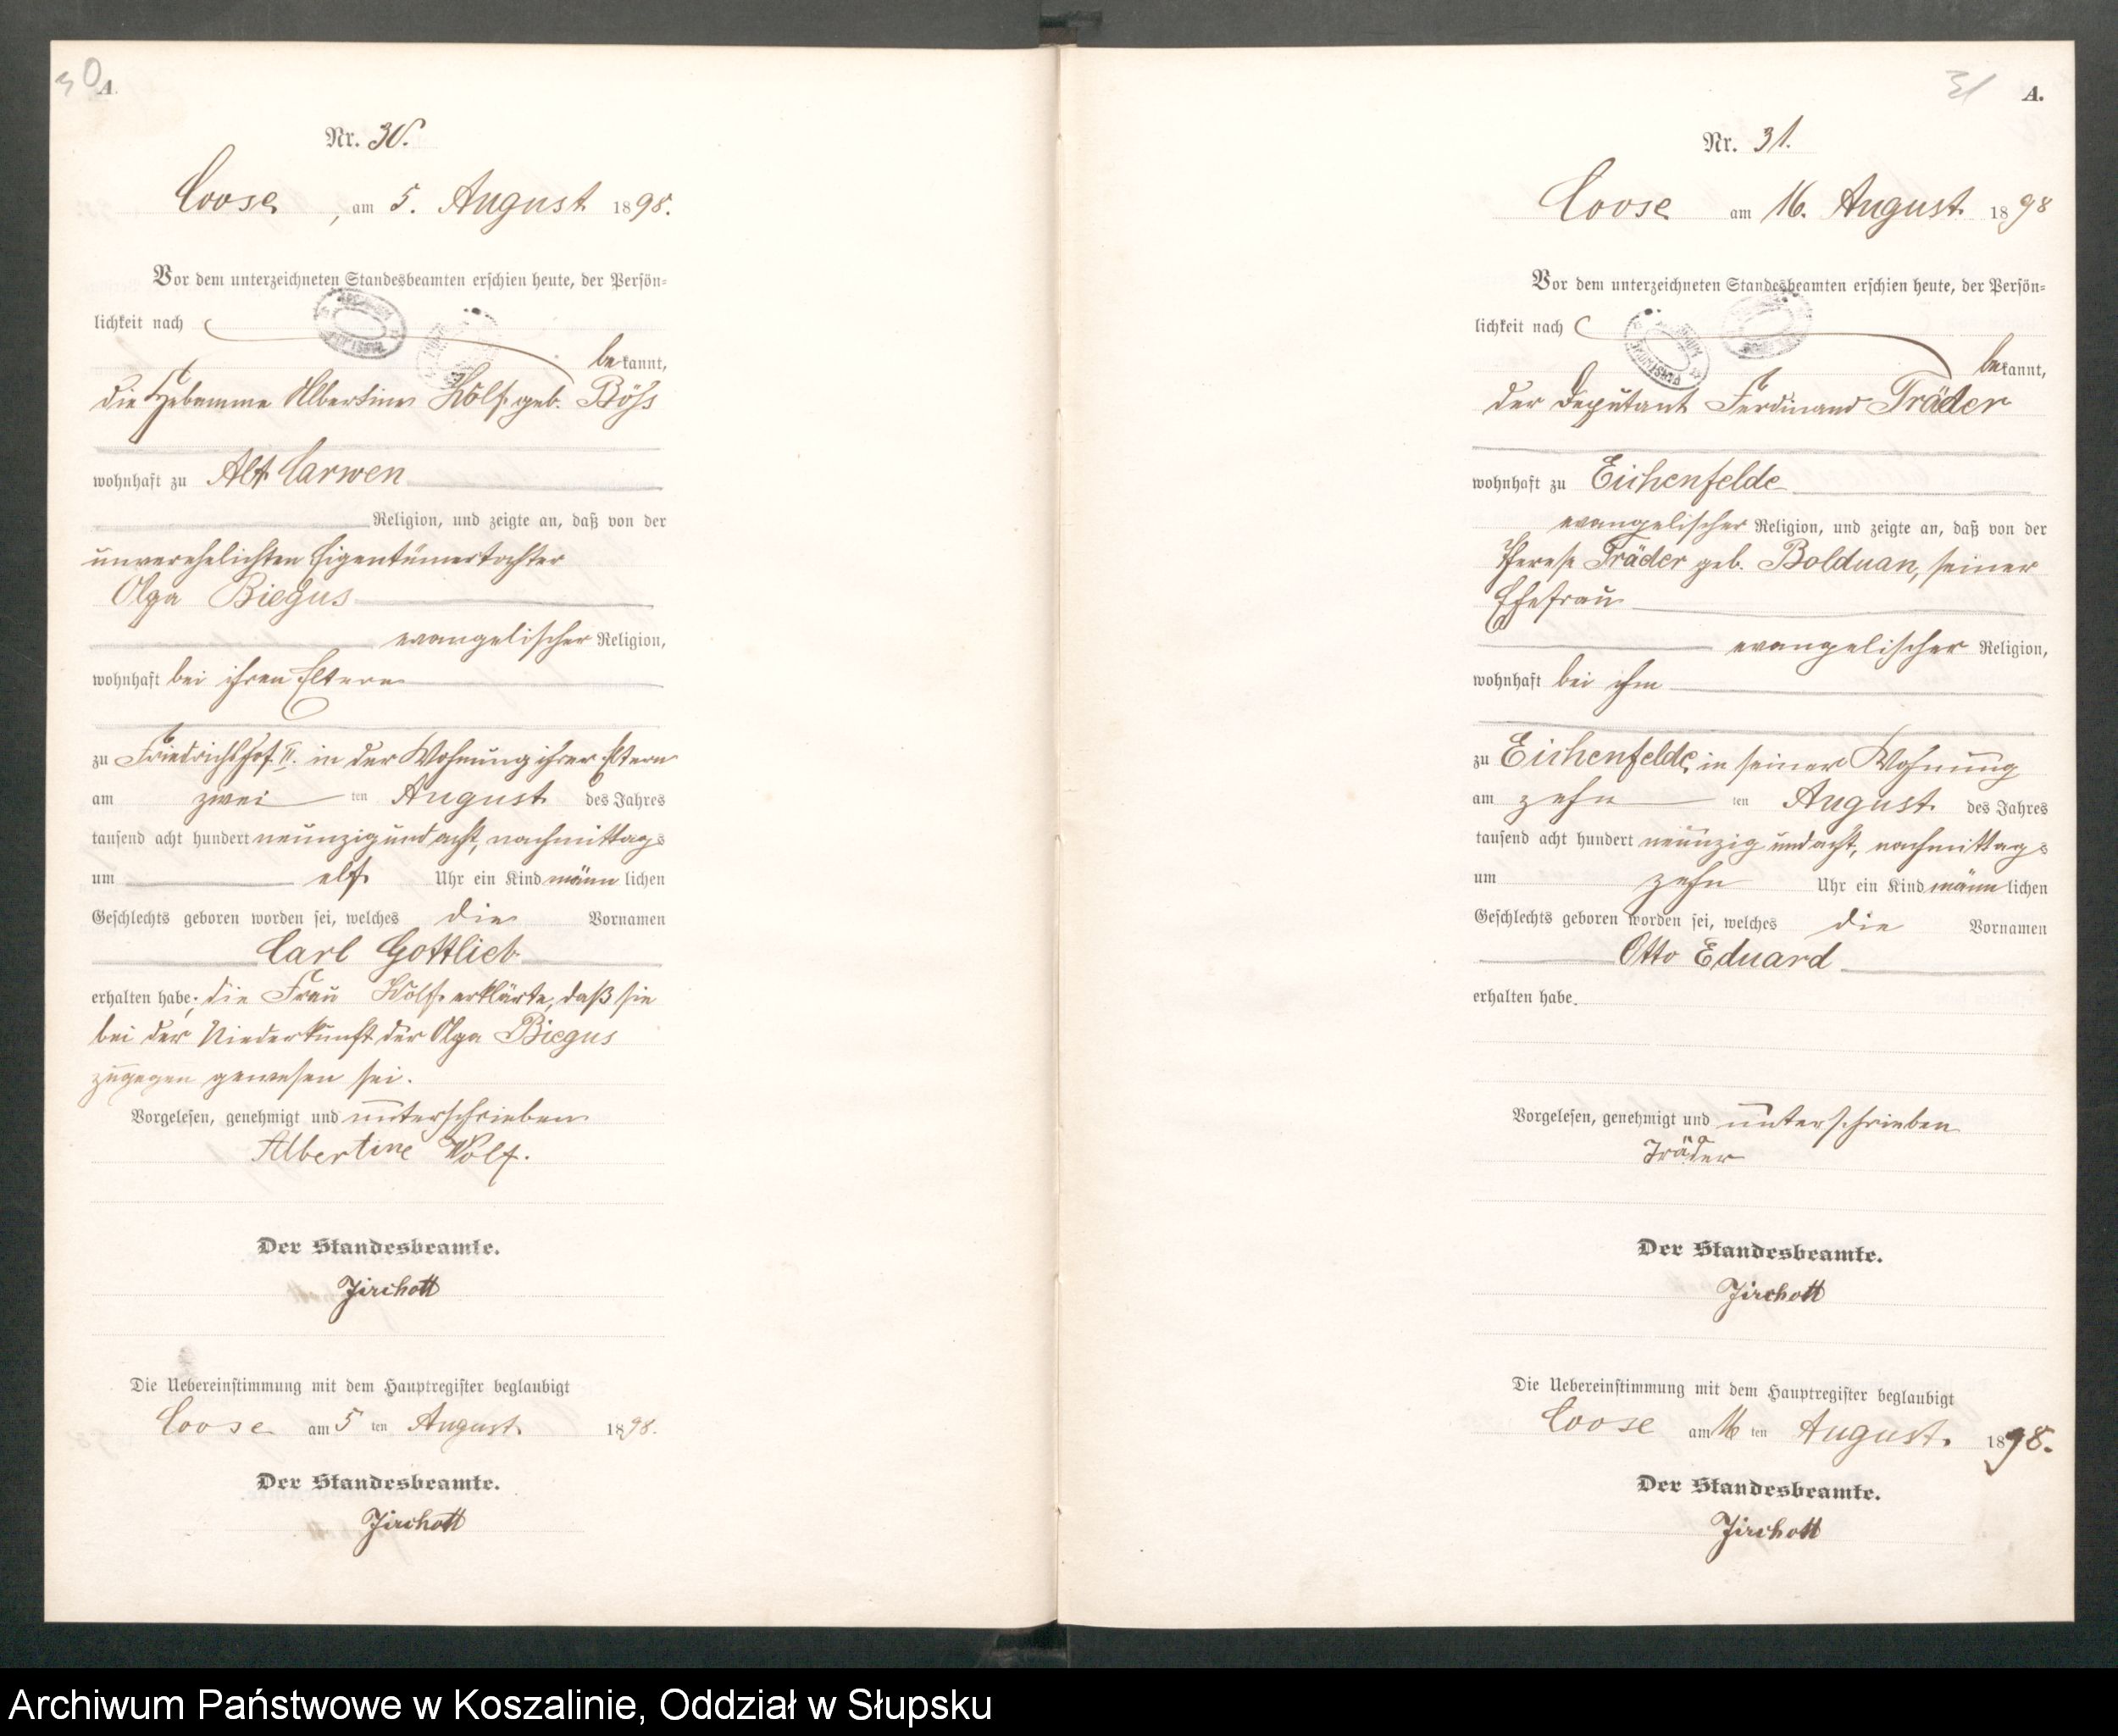 30
A.
Nr. 30.
Coose, am 5. August 1898.
Vor dem unterzeichneten Standesbeamten erschien heute, der Persön-
lichkeit nach
bekannt,
die Hebamme Albertine Wolf geb. Böhs
wohnhaft zu Alt Carwen
Religion, und zeigte an, daß von der
unverehelichten Eigentümertochter
Olga Biegus
evangelischer Religion,
wohnhaft bei ihren Eltern
zu Friedrichshof II. in der Wohnung ihrer Eltern
am zwei ten August des Jahres
tausend acht hundert neunzig und acht, nachmittags
um elf Uhr ein Kind männlichen
Geschlechts geboren worden sei, welches die Vornamen
Carl Gottlieb
erhalten habe; die Frau Wolf erklärte, daß sie
bei der Niederkunft der Olga Biegus
zugegen gewesen sei.
Vorgelesen, genehmigt und unterschrieben
Albertine Wolf.
Der Standesbeamte.
Jirchott
Die Uebereinstimmung mit dem Hauptregister beglaubigt
Coose am 5 ten August 1898.
Der Standesbeamte.
Jirchott
31
A.
Nr. 31.
Coose am 16. August 1898
Vor dem unterzeichneten Standesbeamten erschien heute, der Persön-
lichkeit nach
bekannt,
der Deputant Ferdinand Träder
wohnhaft zu Eichenfelde
evangelischer Religion, und zeigte an, daß von der
Therese Träder geb. Bolduan, seiner
Ehefrau
evangelischer Religion,
wohnhaft bei ihm
zu Eichenfelde, in seiner Wohnung
am zehn ten August des Jahres
tausend acht hundert neunzig und acht, nachmittags
um zehn Uhr ein Kind männlichen
Geschlechts geboren worden sei, welches die Vornamen
Otto Eduard
erhalten habe.
Vorgelesen, genehmigt und unterschrieben
Träder
Der Standesbeamte.
Jirchott
Die Uebereinstimmung mit dem Hauptregister beglaubigt
Coose am 16 ten August. 1898.
Der Standesbeamte.
Jirchott
Archiwum Państwowe w Koszalinie, Oddział w Słupsku